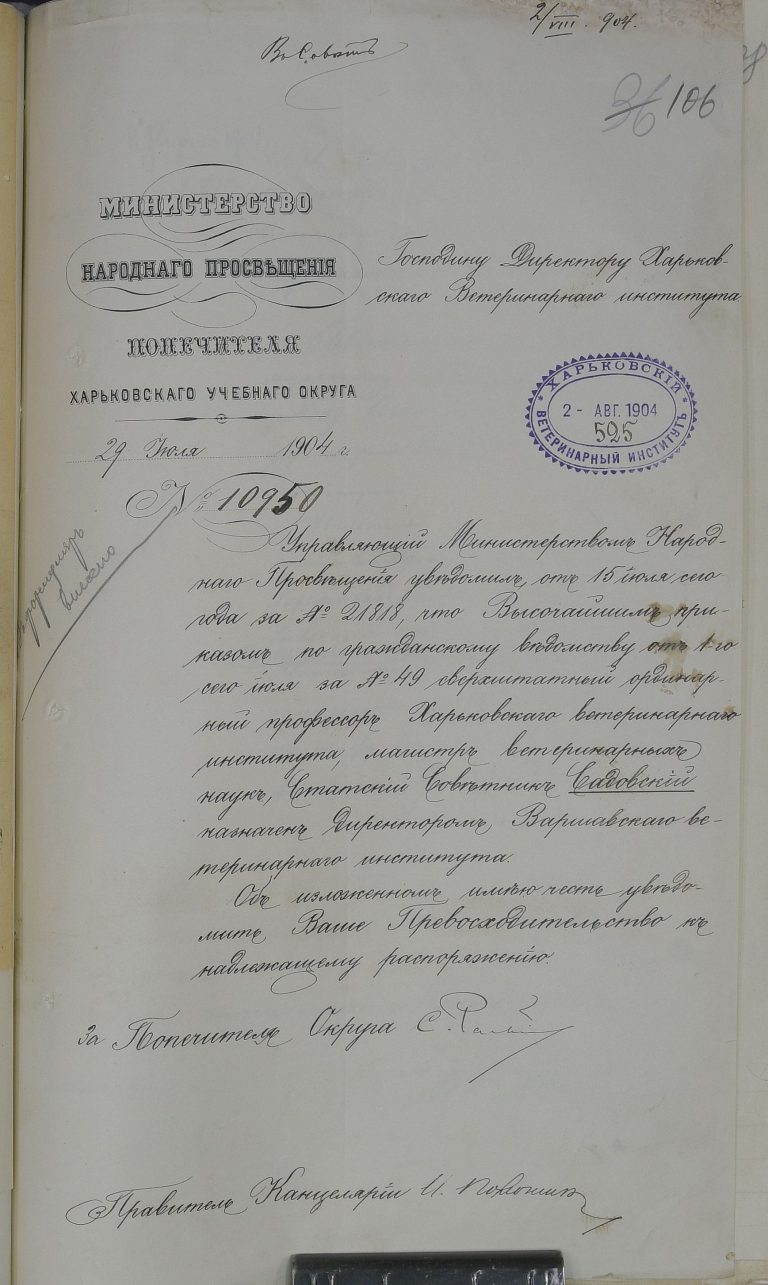 2/VIII. 904.
Въ Совѣтъ
36 106
МИНИСТЕРСТВО
НАРОДНАГО ПРОСВѢЩЕНІЯ
ПОПЕЧИТЕЛЯ
ХАРЬКОВСКАГО УЧЕБНАГО ОКРУГА
29 Июля 1904 г.
№ 10950
Господину Директору Харьков-
скаго Ветеринарнаго института
ХАРЬКОВСКІЙ
2 - АВГ. 1904
525
ВЕТЕРИНАРНЫЙ ИНСТИТУТЪ
Управляющій Министерствомъ Народ-
наго Просвѣщенія увѣдомилъ, отъ 15 іюля сего
года за № 21818, что Высочайшимъ при-
казомъ по гражданскому вѣдомству отъ 1-го
сего іюля за № 49 сверхштатный ординар-
ный профессоръ Харьковскаго ветеринарнаго
института, магистръ ветеринарныхъ
наукъ, Статскій Совѣтникъ Садовскій
назначенъ директоромъ Варшавскаго ве-
теринарнаго института.
Объ изложенномъ имѣю честь увѣдо-
мить Ваше Превосходительство къ
надлежащему распоряженію.
За Попечителя Округа С.
Правитель Канцеляріи И.